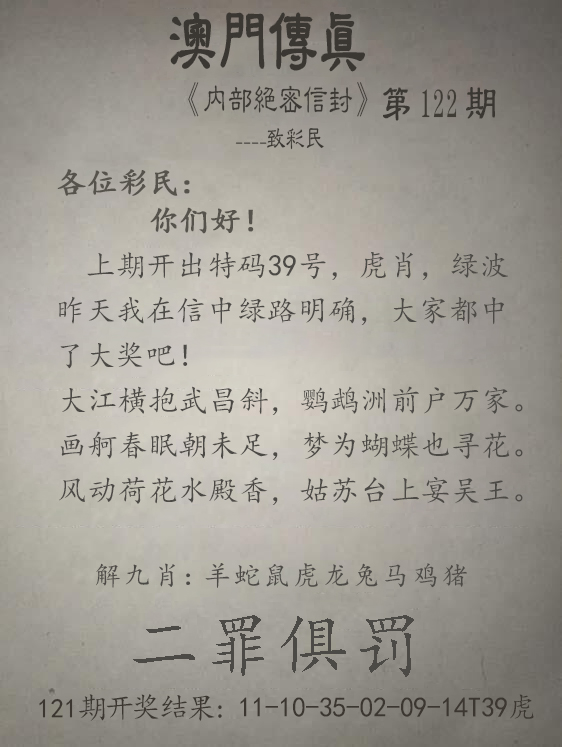 澳門傳眞
《内部絕密信封》第122期
----致彩民
各位彩民：
你们好！
上期开出特码39号，虎肖，绿波
昨天我在信中绿路明确，大家都中
了大奖吧！
大江横抱武昌斜，鹦鹉洲前户万家。
画舸春眠朝未足，梦为蝴蝶也寻花。
风动荷花水殿香，姑苏台上宴吴王。
解九肖：羊蛇鼠虎龙兔马鸡猪
二罪俱罚
121期开奖结果：11-10-35-02-09-14T39虎